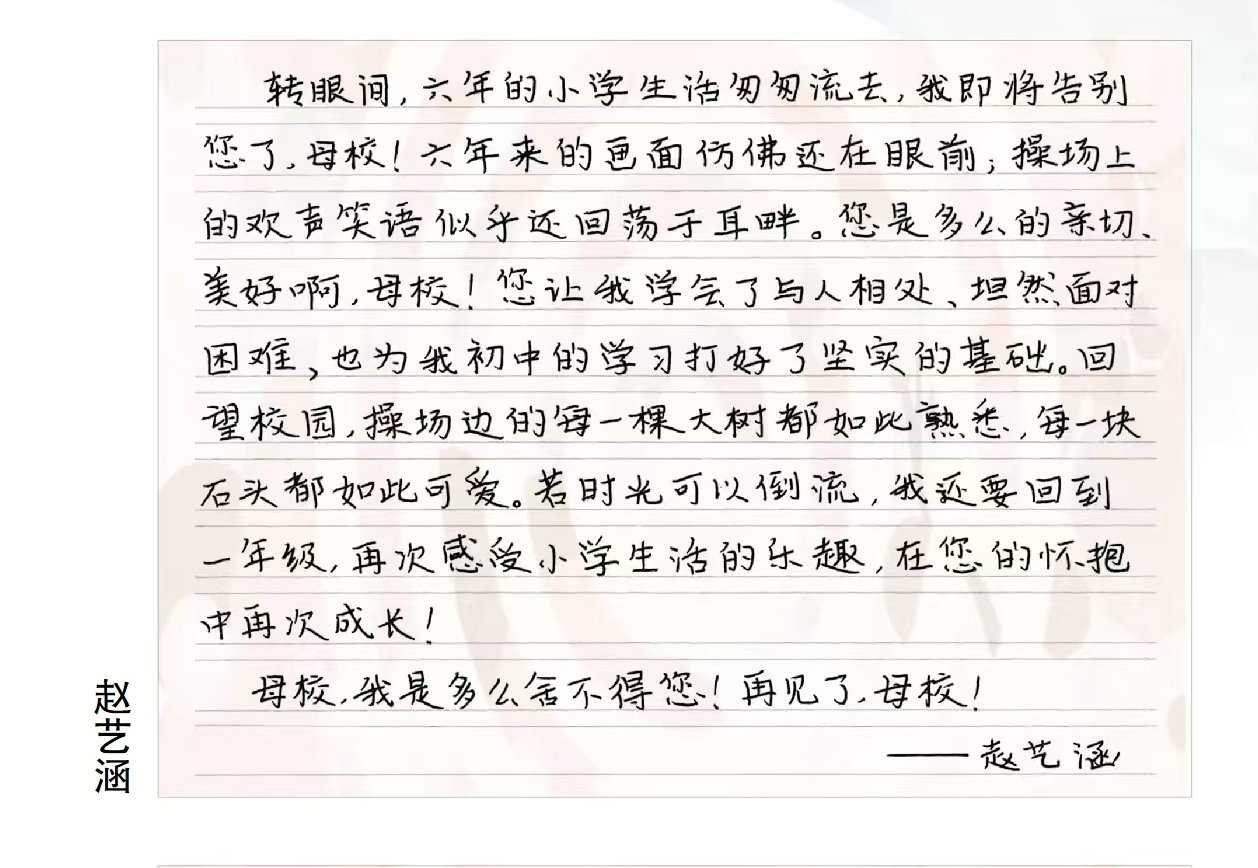 转眼间，六年的小学生活匆匆流去，我即将告别
您了，母校！六年来的画面仿佛还在眼前；操场上
的欢声笑语似乎还回荡于耳畔。您是多么的亲切、
美好啊，母校！您让我学会了与人相处、坦然面对
困难，也为我初中的学习打好了坚实的基础。回
望校园，操场边的每一棵大树都如此熟悉，每一块
石头都如此可爱。若时光可以倒流，我还要回到
一年级，再次感受小学生活的乐趣，在您的怀抱
中再次成长！
母校，我是多么舍不得您！再见了，母校！
——赵艺涵
赵艺涵